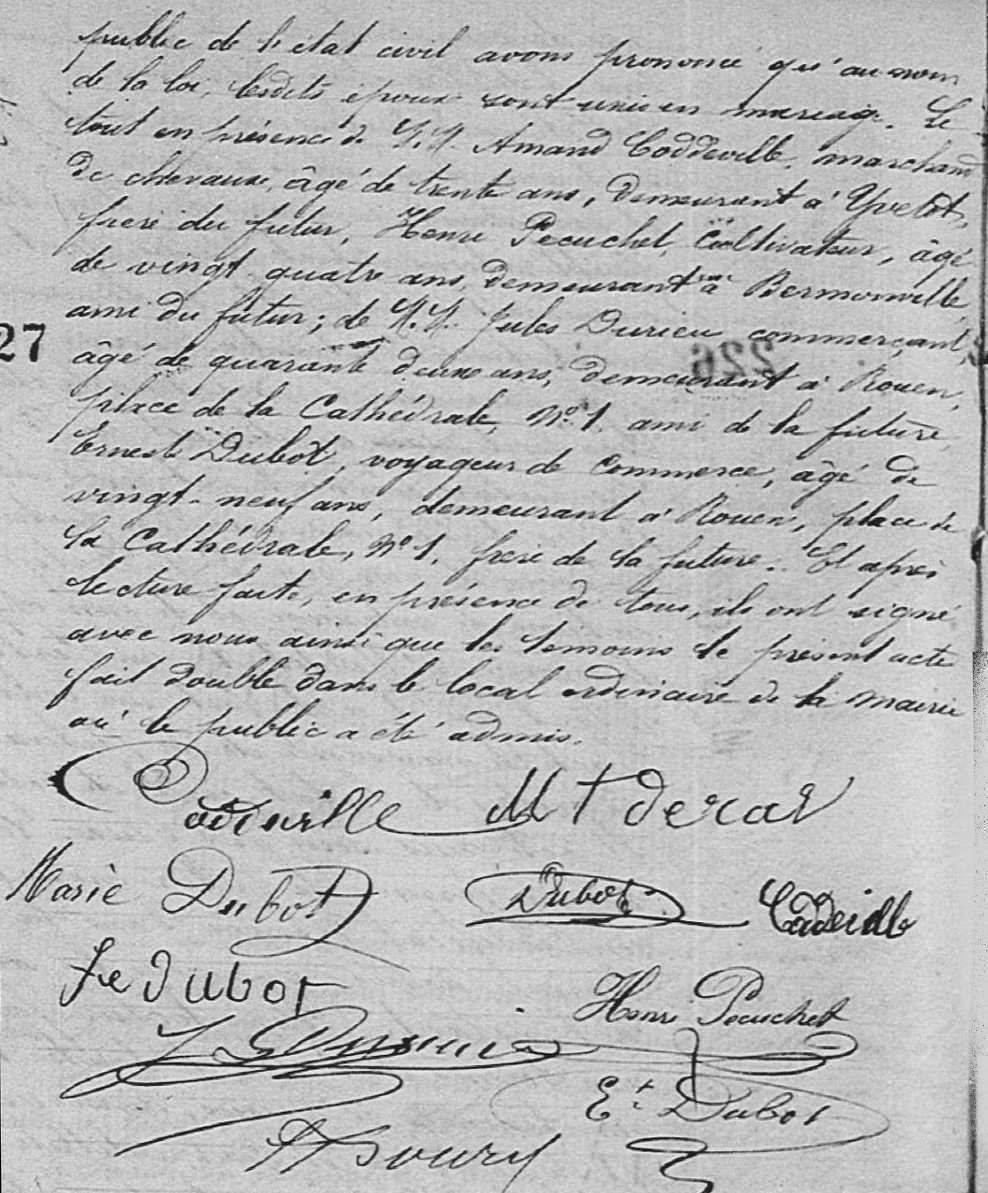 public de l'état civil avons prononcé qu'au nom
de la loi, lesdits époux sont unis en mariage. Le
tout en présence de M.M. Amand Coddeville, marchand
de chevaux, âgé de trente ans, demeurant à Yvetot,
frère du futur, Henri Pecuchet, Cultivateur, âgé
de vingt quatre ans, demeurant à Bermonville,
ami du futur; de M.M. Jules Durieu, commerçant,
27
226
âgé de quarante deux ans, demeurant à Rouen,
place de la Cathédrale, N° 1, ami de la future,
Ernest Dubot, voyageur de commerce, âgé de
vingt-neuf ans, demeurant à Rouen, place de
la Cathédrale, N° 1, frère de la future. Et après
lecture faite, en présence de tous, ils ont signé
avec nous ainsi que les temoins le présent acte
fait double dans le local ordinaire de la Mairie
où le public a été admis.
Marie Dubot Dubot
Dubot Henri Pecuchet
Et Dubot